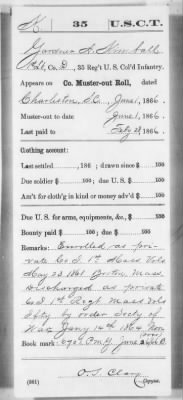 K | 35 | U.S.C.T.
Gardner A. Kimball
Co. D, 35 Reg't U. S. Col'd Infantry.
Appears on Co. Muster-out Roll, dated
Charleston, S.C., June 1, 1866.
Muster-out to date June 1, 1866.
Last paid to Feby 28, 1866.
Clothing account:
Last settled 186 ; drawn since $ 100
Due soldier $ 100; due U. S. $ 100
Am't for cloth'g in kind or money adv'd $ 100
Due U. S. for arms, equipments, &c., $ 100
Bounty paid $ 100; due $ 100
Remarks: Enrolled as pri-
vate Co. 1st Mass Vols
May 23 1861 Mass.
Discharged as private
Co. 1st Regt Mass Vols
by order Secty of
War Jany 14th 1864
Book mark: June 1866
(361) O. S. Clay Copyist.